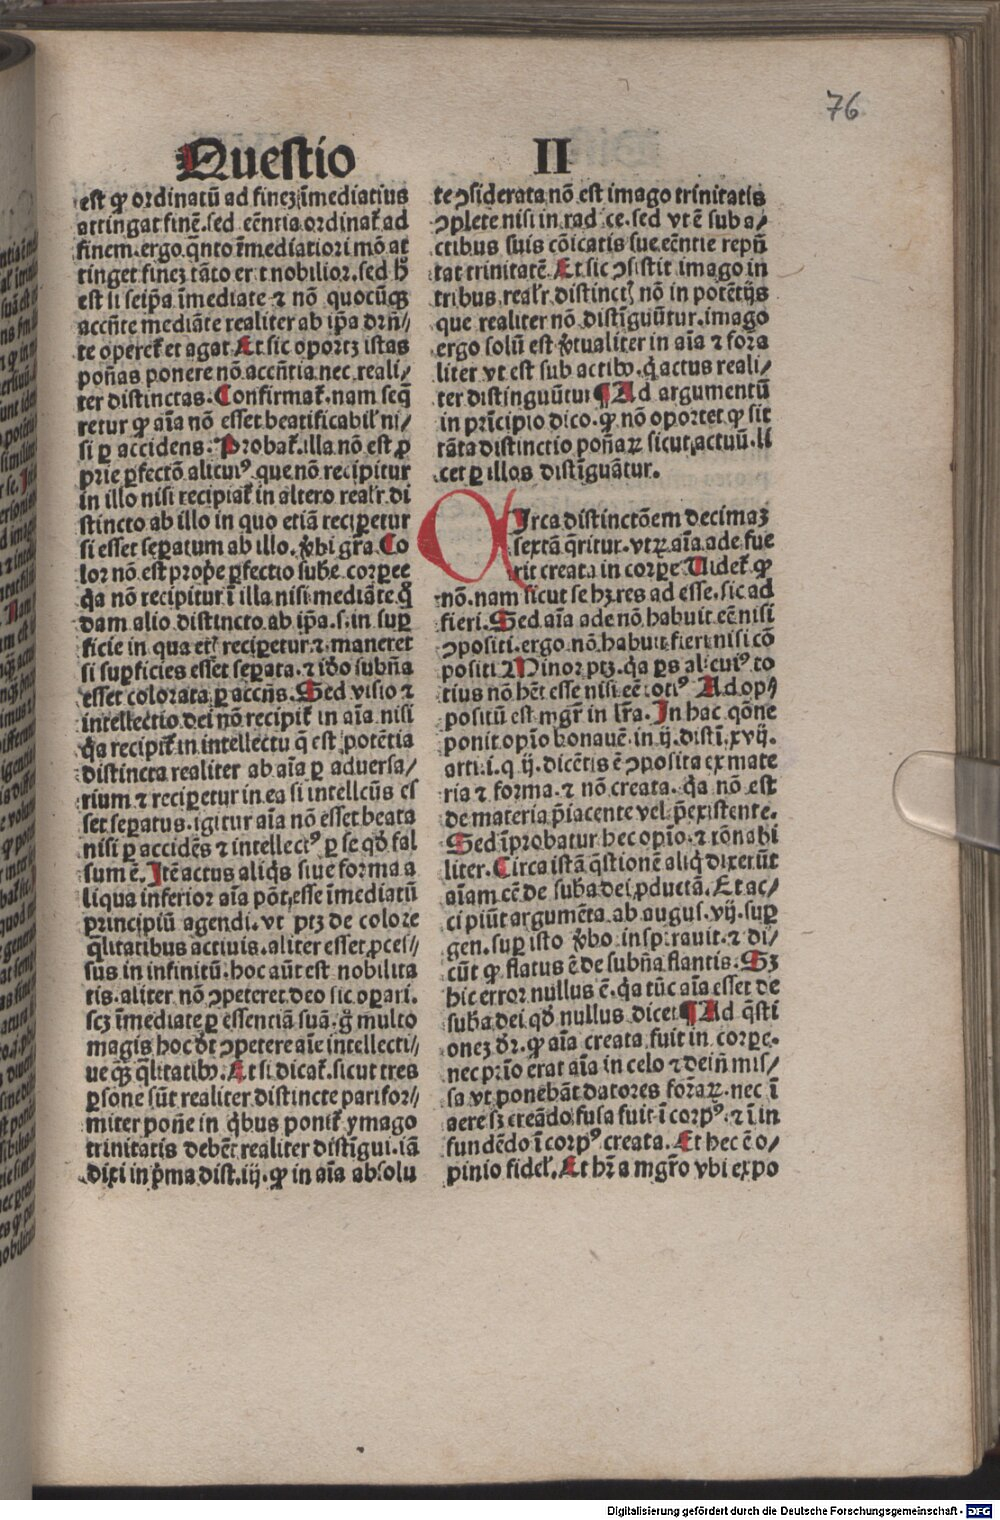 76
Questio II
est ꝙ ordinatū ad finez īmediatius
attingat finē. sed eēntia ordinat᷑ ad
finem. ergo q̄nto īmediatiori mō at
tinget finez tāto erit nobilior. sed
est li seip̄a īmediate ⁊ nō quocūqꝫ
accn̄te mediāte realiter ab ip̄a drn̄/
te operet᷑ et agat. Et sic oportꝫ istas
poñas ponere nō accn̄tia nec reali/
ter distinctas. Confirmat᷑. nam seq̄
retur ꝙ aīa nō esset beatificabil' ni/
si ꝑ accidens. Probat᷑. illa nō est ꝓ
prie ꝑfectō alicuiꝰ. que nō recipitur
in illo nisi recipiat᷑ in altero real'r di
stincto ab illo in quo etiā reciꝑetur
si esset seꝑatum ab illo. v̄bi gr̄a. Co
lor nō est prop̄e ꝑfectio sub̄e corꝑee
q̇a nō recipitur ī illa nisi mediāte q̇
dam alio distincto ab ip̄a. s. in suꝑ
ficie in qua etī reciꝑetur. ⁊ maneret
si suꝑficies esset seꝑata. ⁊ iđo subn̄a
esset colorata ꝑ accn̄s. Sed visio ⁊
intellectio dei nō recipit᷑ in aīa nisi
q̇a recipit᷑ in intellectu q̄ est potētia
distincta realiter ab aīa ꝑ aduersa/
rium ⁊ reciꝑetur in ea si intellcūs es
set seꝑatus. igitur aīa nō esset beata
nisi ꝑ accidēs ⁊ intellectꝰ ꝑ se qđ fal
sum ē. Itē actus aliq̇s siue forma a
liqua inferior aīa pōt esse īmediatū
principiū agendi. vt ptꝫ de colore
q̄litatibus actiuis. aliter esset ꝓces/
sus in infinitū. hoc aūt est nobilita
tis. aliter nō ↄpeteret deo sic oꝑari.
scꝫ īmediate ꝑ essentiā suā. g̊ multo
magis hoc dꝫ ↄpetere aīe intellecti/
ue q̄ꝫ q̄litatibꝰ. Et si dicat᷑. sicut tres
ꝑsone sūt realiter distincte pariſor/
miter pon̄e in q̇bus ponit᷑ ymago
trinitatis debēt realiter distīgui. iā
dixi in p̄ma dist. iij. ꝙ in aīa absolu
te ↄsiderata nō est imago trinitatis
ↄplete nisi in radice. sed vt ē sub a/
ctibus suis cōicatis sue eēntie repn̄
tat trinitatē. Et sic ↄsistit imago in
tribus real'r distinctꝭ nō in potētijs
que realiter nō distīguūtur. imago
ergo solū est v̄tualiter in aīa ⁊ forma
liter vt est sub actibꝰ. q̇ actus reali/
ter distinguūtur ¶ Ad argumentū
in pr̄incipio dico. ꝙ nō oportet ꝙ sit
tāta distinctio poñaꝝ sicut actuū. li
cet ꝑ illos distīguātur.
Irca distinctōem decimaꝫ
sextā q̄ritur. vtꝝ aīa ade fue
rit creata in corꝑe Uidet᷑ ꝙ
nō. nam sicut se hꝫ res ad esse. sic ad
fieri. Sed aīa ade nō habuit eē nisi
ↄpositi. ergo nō habuit fieri nisi cō
positi Minor ptꝫ. q̇a ꝑs alicuiꝰ to
tius nō hēt esse nisi eē totiꝰ Ad op/
positū est mgr̄ in lr̄a. In hac qōne
ponit opīo bonauē. in ij. distī. xvij.
arti. i. q ij. dicētis ē ↄposita ex mate
ria ⁊ forma. ⁊ nō creata. q̇a nō est
de materia p̄iacente vel p̄existente.
Sed īprobatur hec opīo. ⁊ rōnabi
liter. Circa istā q̄stionē aliq̇ dixerūt
aīam eē de sub̄a dei ꝓductā. Et ac/
cipiūt argumēta ab augus. vij. suꝑ
gen. suꝑ isto v̄bo inspirauit. ⁊ di/
cūt ꝙ flatus ē de subn̄a flantis. Sꝫ
hic error nullus ē. q̇a tūc aīa esset de
sub̄a dei qđ nullus dicet ¶ Ad q̄sti
onez dr̄. ꝙ aīa creata fuit in corꝑe.
nec pr̄io erat aīa in celo ⁊ dein̄ mis/
sa vt ponebāt datores formaꝝ. nec ī
aere sꝫ creādo fusa fuit ī corpꝰ. ⁊ ī in
fundēdo ī corpꝰ creata. Et hec ē o/
pinio fidel'. Et hr̄ a mgr̄o vbi expo
Digitalisierung gefördert durch die Deutsche Forschungsgemeinschaft - DFG